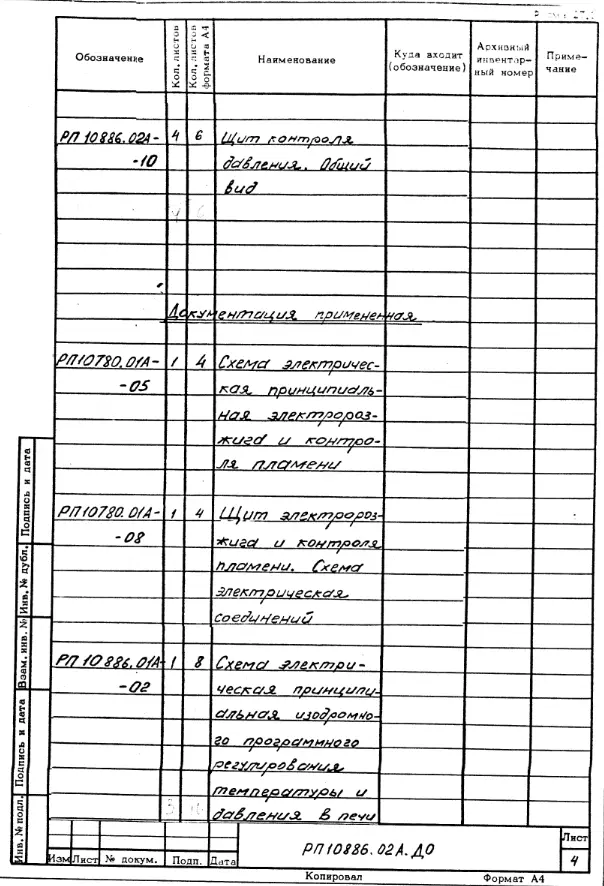 Обозначение
Кол. листов
Кол. листов формата А4
Наименование
Куда входит (обозначение)
Архивный инвентар-
ный номер
Приме-
чание
РП 10886.02А- 4 6 Щит контроля
-10 давления. Общий
вид
Документация примененная
РП10780.01А- 1 4 Схема электричес-
-05 кая принципиаль-
ная электророз-
жига и контро-
ля пламени
РП10780.01А- 1 4 Щит электророз-
-08 жига и контроля
пламени. Схема
электрическая
соединений
РП 10886.01А- 1 8 Схема электри-
-02 ческая принципи-
альная изодромно-
го программного
регулирования
температуры и
давления в печи
Инв. № подл. Подпись и дата Взам. инв. № Инв. № дубл. Подпись и дата
Изм Лист № докум. Подп. Дата
РП10886.02А.ДО
Лист
4
Копировал Формат А4